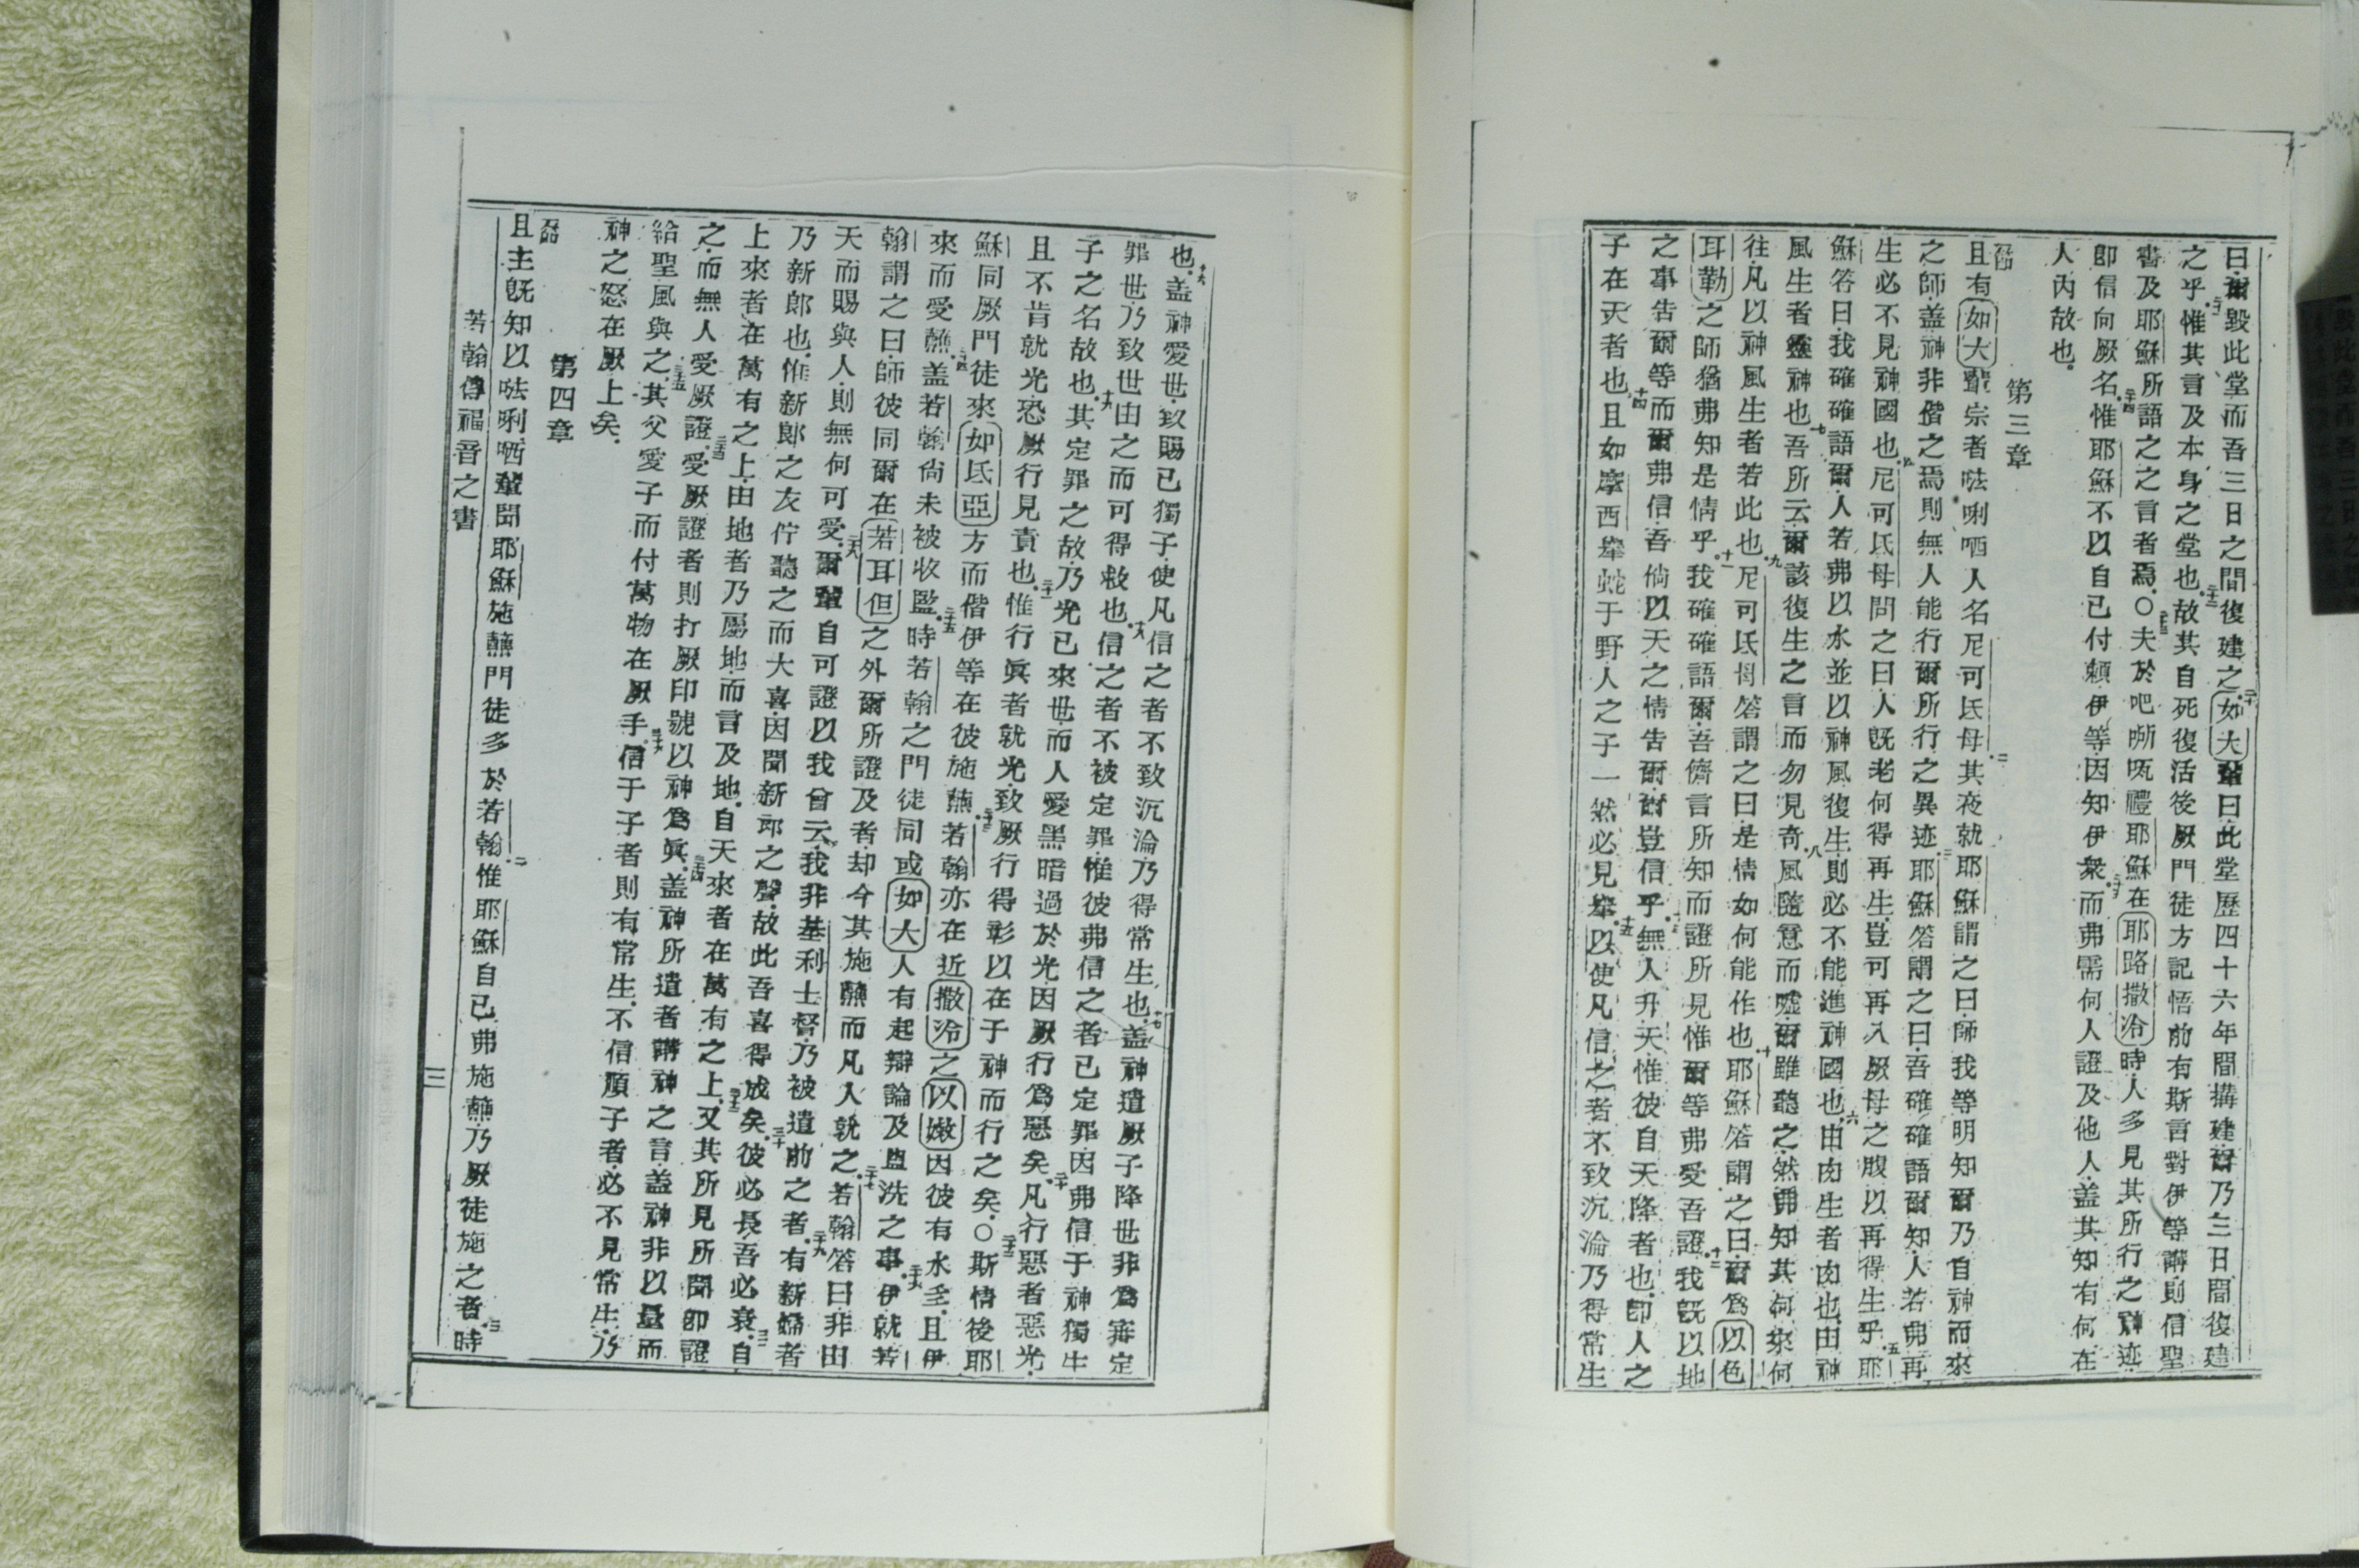 曰爾毀此堂而吾三日之間復建之二十如大輩曰此堂歷四十六年間搆建爾乃三日間復建
之乎二十一惟其言及本身之堂也二十二故其自死復活後厥門徒方記悟前有斯言對伊等講則信聖
書及耶穌所語之之言者焉○二十三夫於吧㖿㕸禮耶穌在耶路撒冷時人多見其所行之神迹
卽信向厥名二十四惟耶穌不以自己付賴伊等因知伊衆二十五而弗需何人證及他人盖其知有何在
人內故也
第三章
一節
且有如大輩宗者𠵽唎哂人名尼可氐母二其夜就耶穌謂之曰師我等明知爾乃自神而來
之師盖神非偕之焉則無人能行爾所行之異迹三耶穌答謂之曰吾確確語爾知人若弗再
生必不見神國也四尼可氐母問之曰人旣老何得再生豈可再入厥母之腹以再得生乎五耶
穌答曰我確確語爾人若弗以水並以神風復生則必不能進神國也六由肉生者肉也由神
風生者靈神也七吾所云爾該復生之言而勿見奇八風隨意而噓爾雖聽之然弗知其何來何
往凡以神風生者若此也九尼可氐母答謂之曰是情如何能作也十耶穌答謂之曰爾爲以色
耳勒之師猶弗知是情乎十一我確確語爾吾儕言所知而證所見惟爾等弗愛吾證十二我旣以地
之事告爾等而爾弗信吾倘以天之情告爾爾豈信乎十三無人升天惟彼自天降者也卽人之
子在天者也十四且如摩西舉蛇于野人之子一然必見舉十五以使凡信之者不致沉淪乃得常生
也十六盖神愛世致賜己獨子使凡信之者不致沉淪乃得常生也十七盖神遣厥子降世非爲審定
罪世乃致世由之而可得救也十八信之者不被定罪惟彼弗信之者已定罪因弗信于神獨生
子之名故也十九其定罪之故乃光已來世而人愛黑暗過於光因厥行爲惡矣二十凡行惡者惡光
且不肯就光恐厥行見責也二十一惟行眞者就光致厥行得彰以在于神而行之矣○二十二斯情後耶
穌同厥門徒來如氐亞方而偕伊等在彼施蘸二十三若翰亦在近撒冷之以嫩因彼有水至且伊
來而愛蘸二十四盖若翰尙未被收監二十五時若翰之門徒同或如大人有起辯論及盥洗之事二十六伊就若
翰謂之曰師彼同爾在若耳但之外爾所證及者却今其施蘸而凡人就之二十七若翰答曰非由
天而賜與人則無何可愛二十八爾輩自可證以我曾云我非基利士督乃被遣前之者二十九有新婦者
乃新郎也惟新郎之友佇聽之而大喜因聞新郎之聲故此吾喜得成矣三十彼必長吾必衰三十一自
上來者在萬有之上由地者乃屬地而言及地自天來者在萬有之上三十二又其所見所聞卽證
之而無人受厥證三十三受厥證者則打厥印號以神爲眞三十四盖神所遣者講神之言盖神非以量而
給聖風與之三十五其父愛子而付萬物在厥手三十六信于子者則有常生不信順子者必不見常生乃
神之怒在厥上矣
第四章
一節
且主旣知以𠵽唎哂輩聞耶穌施蘸門徒多於若翰二惟耶穌自己弗施蘸乃厥徒施之者三時
若翰傳福音之書
三